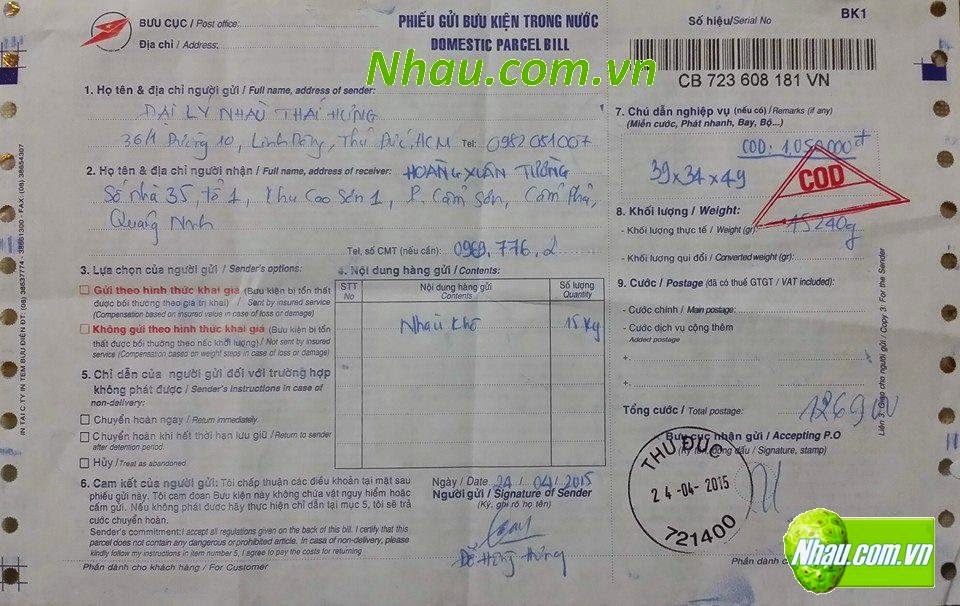 BƯU CỤC / Post office:
Địa chỉ / Address:
PHIẾU GỬI BƯU KIỆN TRONG NƯỚC
DOMESTIC PARCEL BILL
Nhau.com.vn
Số hiệu/Serial No
BK1
CB 723 608 181 VN
1. Họ tên & địa chỉ người gửi / Full name, address of sender:
ĐẠI LÝ NHÀU THÁI HƯNG
36/1 Đường 10, Linh Đông, Thủ Đức, HCM Tel: 0982081007
2. Họ tên & địa chỉ người nhận / Full name, address of receiver: HOÀNG XUÂN TƯỜNG
Số nhà 35, tổ 1, Khu Cao Sơn 1, P. Cẩm Sơn, Cẩm Phả,
Quảng Ninh
Tel, số CMT (nếu cần): 0969.776.2
3. Lựa chọn của người gửi / Sender's options:
Gửi theo hình thức khai giá (Bưu kiện bị tổn thất
được bồi thường theo giá trị khai) / Sent by insured service
(Compensation based on insured value in case of loss or damage)
Không gửi theo hình thức khai giá (Bưu kiện bị tổn
thất được bồi thường theo nấc khối lượng) / Not sent by insured
service (Compensation based on weight steps in case of loss or damage)
4. Nội dung hàng gửi / Contents:
STT No
Nội dung hàng gửi Contents
Số lượng Quantity
Nhàu khô 15 kg
5. Chỉ dẫn của người gửi đối với trường hợp
không phát được / Sender's instructions in case of
non-delivery:
Chuyển hoàn ngay / Return immediately
Chuyển hoàn khi hết thời hạn lưu giữ / Return to sender
after detention period.
Hủy / Treat as abandoned
6. Cam kết của người gửi: Tôi chấp thuận các điều khoản tại mặt sau
phiếu gửi này. Tôi cam đoan Bưu kiện này không chứa vật nguy hiểm hoặc
cấm gửi. Nếu không phát được hãy thực hiện chỉ dẫn tại mục 5, tôi sẽ trả
cước chuyển hoàn.
Sender's commitment: I accept all regulations given on the back of this bill. I certify that this
parcel does not contain any dangerous or prohibited article. In case of non-delivery, please
kindly follow my instructions in item number 5, I agree to pay the costs for returning
Phần dành cho khách hàng / For Customer
Ngày / Date 24 / 04 / 2015
Người gửi / Signature of Sender
(Ký, ghi rõ họ tên)
7. Chú dẫn nghiệp vụ (nếu có) / Remarks (if any)
(Miễn cước, Phát nhanh, Bay, Bộ...)
COD: 1.050.000đ
39x34x49
COD
8. Khối lượng / Weight:
- Khối lượng thực tế / Weight (gr): 15240g
- Khối lượng qui đổi / Converted weight (gr):
9. Cước / Postage (đã có thuế GTGT / VAT included):
- Cước chính / Main postage:
- Cước dịch vụ cộng thêm
Added postage
+
+
Tổng cước / Total postage:
Bưu cục nhận gửi / Accepting P.O
(Ký tên, đóng dấu / Signature, stamp)
THỦ ĐỨC
24-04-2015
721400
Phần dành
Nhau.com.vn
Liên 3: Giao cho người gửi / Copy 3: For the Sender